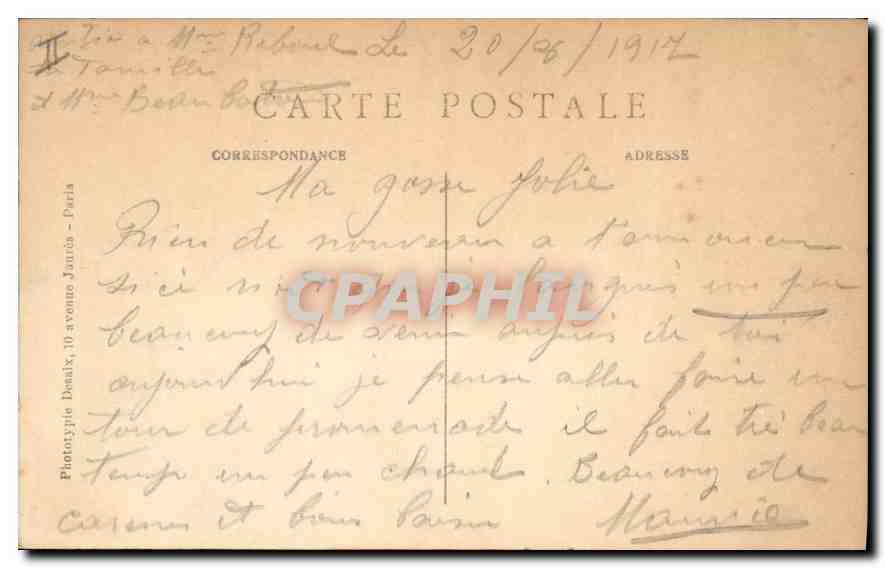 a Mme Reboul Le 20/6/1917
Famille
et Mme Beau
CARTE POSTALE
CORRESPONDANCE
ADRESSE
Ma gosse Jolie
Rien de nouveau a t'annoncer
si ce n'est que je languis un peu
beaucoup de venir auprès de toi
aujourd'hui je pense aller faire un
tour de promenade il fait trè beau
temp un peu chaud. Beaucoup de
caresses et bons baiser Maurice
Phototypie Desaix, 10 avenue Jaurès - Paris
CPAPHIL